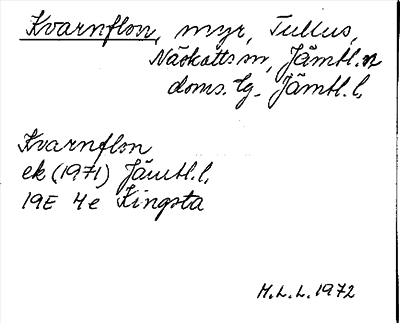 Kvarnflon, myr, Tullus,
Näskotts sn, Jämtl. n
doms. lg., Jämtl. l.
Kvarnflon
ek (1971) Jämtl. l.
19E 4e Kingsta
H. L. L. 1972